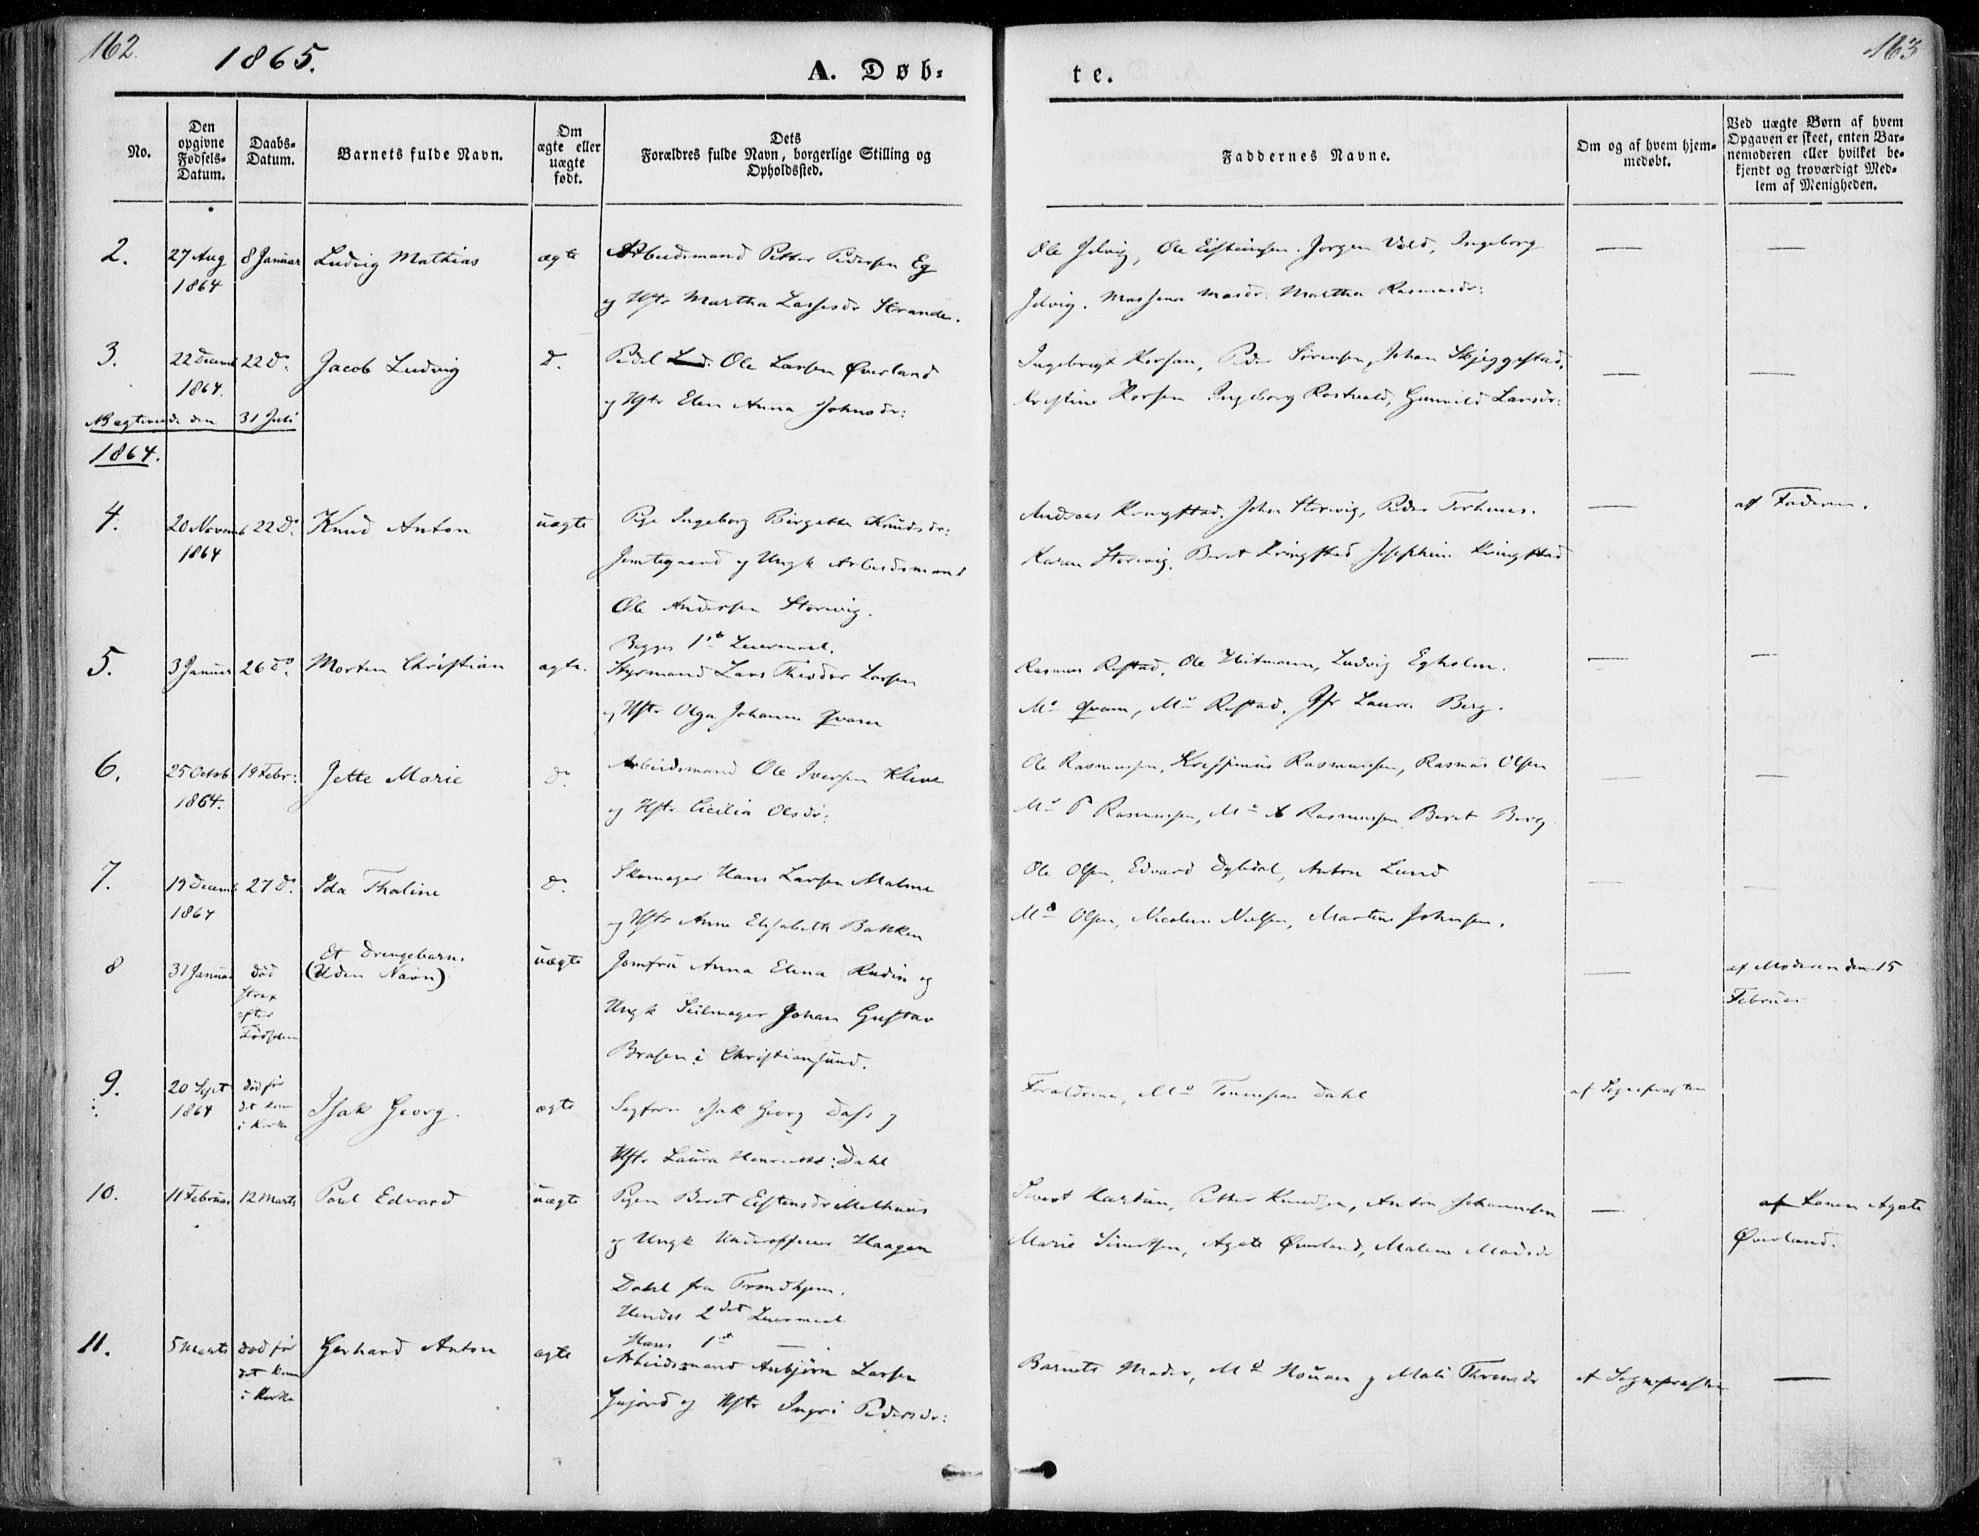 162.
1865.
A. Døb-
te.
163
No.
Den opgivne Fødsels-Datum.
Daabs-Datum.
Barnets fulde Navn.
Om ægte eller uægte født.
Dets Forældres fulde Navn, borgerlige Stilling og Opholdssted.
Faddernes Navne.
Om og af hvem hjem-medøbt.
Ved uægte Børn af hvem Opgaven er skeet, enten Bar-nemoderen eller hvilket be-kjendt og troværdigt Med-lem af Menigheden.
2. 27 Aug 8 Januar Ludvig Mathias ægte Arbeidsmand Petter Pedersen Eg
1864 og Hstr Martha Larsdr Strande.
Ole Jelvig, Ole Eisteinsen. Jørgen Vold, Ingeborg — —
Jelvig. Masdr: Martha Rasmusdr:
3. 22 Decemb 22 d. Jacob Ludvig d. Pedel Ole Larsen Øverland
1864. og Hstr Elen Anna Johnsdr:
Ingebrigt Korsan, Peder Sørensen, Johan Skjeggestad, — —
Kristine Korsen Ingeborg Gunnild Larsdr:
den 31 Juli
1864.
4. 20 Novemb 22 d. Knud Anton uægte Pige Ingeborg Birgette Knudsdr:
1864 Jemtegaard og Ungk Arbeidsmand
Ole Andersen Storvig.
Begges 1ste Leiermaal.
Andreas Kringstad. John Storvig, Peder — af Faderen.
Karen Storvig. Beret Kringstad Josephine Kringstad
5. 3 Januar 26 d. Morten Christian ægte. Styrmand Lars Theodor Larsen
og Hstr Olga Johanne Qvam
Rasmus Rostad. Ole Heitmann, Ludvig Egholm. — —
Md Qvam, Md Rostad. Jfr Laura Berg.
6. 25 Octob 19 Febr: Jette Marie d. Arbeidsmand Ole Iversen Kleve
1864. og Hstr Cicilia Olsdr:
Ole Rasmussen, Rasmussen, Rasmus Olsen — —
Md P Rasmussen, Md A Rasmussen Beret Berg
7. 19 Decemb 27 d. Ida Thaline d. Skomager Hans Larsen Malme
1864 og Hstr Anne Elisabeth Bakken
Ole Olsen Edvard Anton Lund — —
Md Olsen, Nicoline Nielsen, Martine Johnsen.
8 31 Januar død Et Drengebarn. uægte Jomfru Anna Elena Rudin og
strax (Uden Navn) Ungk Seilmager Johan Gustav
efter Brasen i Christiansund.
Fødselen
— af Moderen den 15
Februar
9. 20 Sept død før Isak Georg. ægte Isak Georg Dass og
1864 det kom Hstr Laura Dahl
i Kirke
Forældrene, Md Tønnesen Dahl af Sognepræsten
10. 11 Februar 12 Marts Poul Edvard uægte Pigen Beret Eistensdr
og Ungk Underofficer Haagen
Dahl fra Trondhjem.
Hendes 2det Leiermaal
Hans 1st —
Sivert Petter Knudsen, Anton Johannesen — af Konen Agate
Marie Sivertsen, Agate Øverland, Malene Madsdr Øverland.
11. 5 Marts død før Gerhard Anton ægte Arbeidsmand Anbjørn Larsen
det kom og Hstr Ingri Pedersdr:
i Kirke
Barnets Moder, Md og Mali af Sognepræsten —